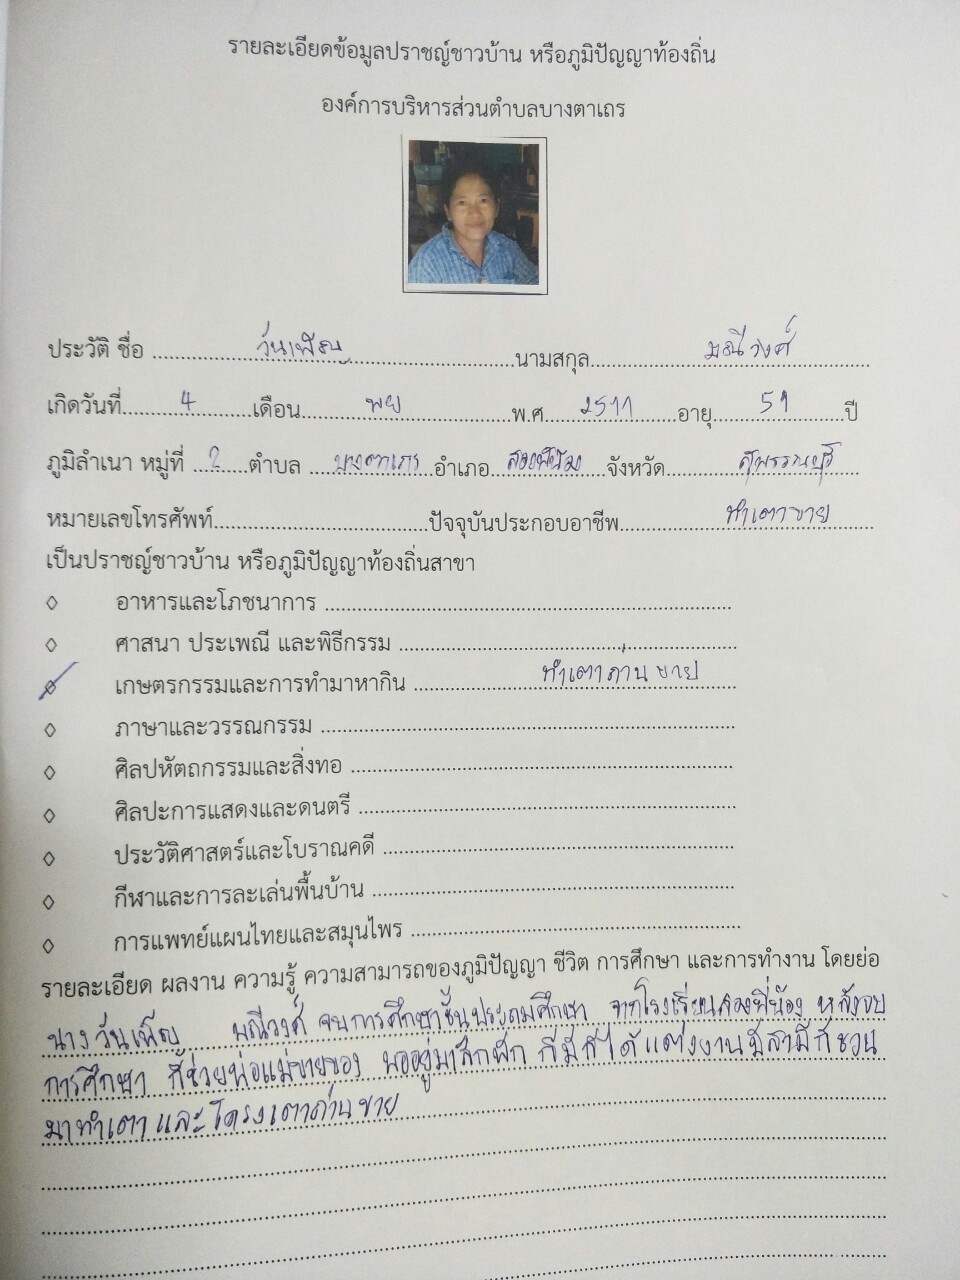 รายละเอียดข้อมูลปราชญ์ชาวบ้าน หรือภูมิปัญญาท้องถิ่น
องค์การบริหารส่วนตำบลบางตาเถร
ประวัติ ชื่อ วันเพ็ญ นามสกุล มณีวงศ์
เกิดวันที่ 4 เดือน พย พ.ศ 2511 อายุ 51 ปี
ภูมิลำเนา หมู่ที่ 2 ตำบล บางตาเถร อำเภอ สองพี่น้อง จังหวัด สุพรรณบุรี
หมายเลขโทรศัพท์ ปัจจุบันประกอบอาชีพ ทำเตาขาย
เป็นปราชญ์ชาวบ้าน หรือภูมิปัญญาท้องถิ่นสาขา
◊ อาหารและโภชนาการ
◊ ศาสนา ประเพณี และพิธีกรรม
◊ เกษตรกรรมและการทำมาหากิน ทำเตาถ่านขาย
◊ ภาษาและวรรณกรรม
◊ ศิลปหัตถกรรมและสิ่งทอ
◊ ศิลปะการแสดงและดนตรี
◊ ประวัติศาสตร์และโบราณคดี
◊ กีฬาและการละเล่นพื้นบ้าน
◊ การแพทย์แผนไทยและสมุนไพร
รายละเอียด ผลงาน ความรู้ ความสามารถของภูมิปัญญา ชีวิต การศึกษา และการทำงาน โดยย่อ
นางวันเพ็ญ มณีวงศ์ จบการศึกษาชั้นประถมศึกษา จากโรงเรียนสองพี่น้อง หลังจบ
การศึกษา ก็ช่วยพ่อแม่ขายของ พออยู่มาสักพัก ก็ได้แต่งงานมีสามีก็ชวน
มาทำเตา และโครงเตาถ่านขาย